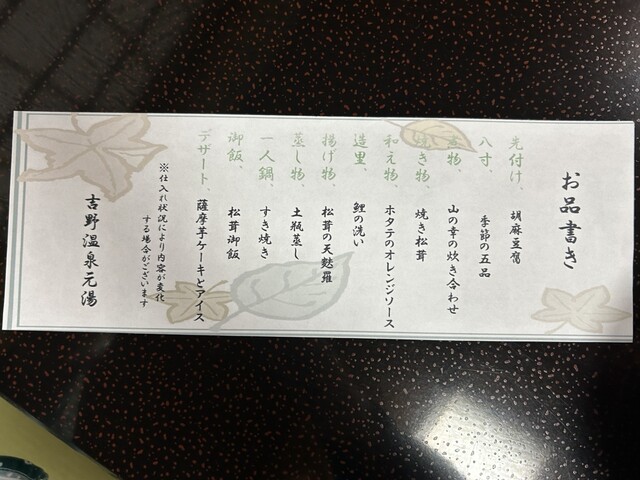 お品書き
先付け、 胡麻豆腐
八寸、 季節の五品
煮物、 山の幸の炊き合わせ
焼き物、 焼き松茸
和え物、 ホタテのオレンジソース
造里、 鯉の洗い
揚げ物、 松茸の天麩羅
蒸し物、 土瓶蒸し
一人鍋、 すき焼き
御飯、 松茸御飯
デザート、 薩摩芋ケーキとアイス
※仕入れ状況により内容が変化
する場合がございます
吉野温泉元湯